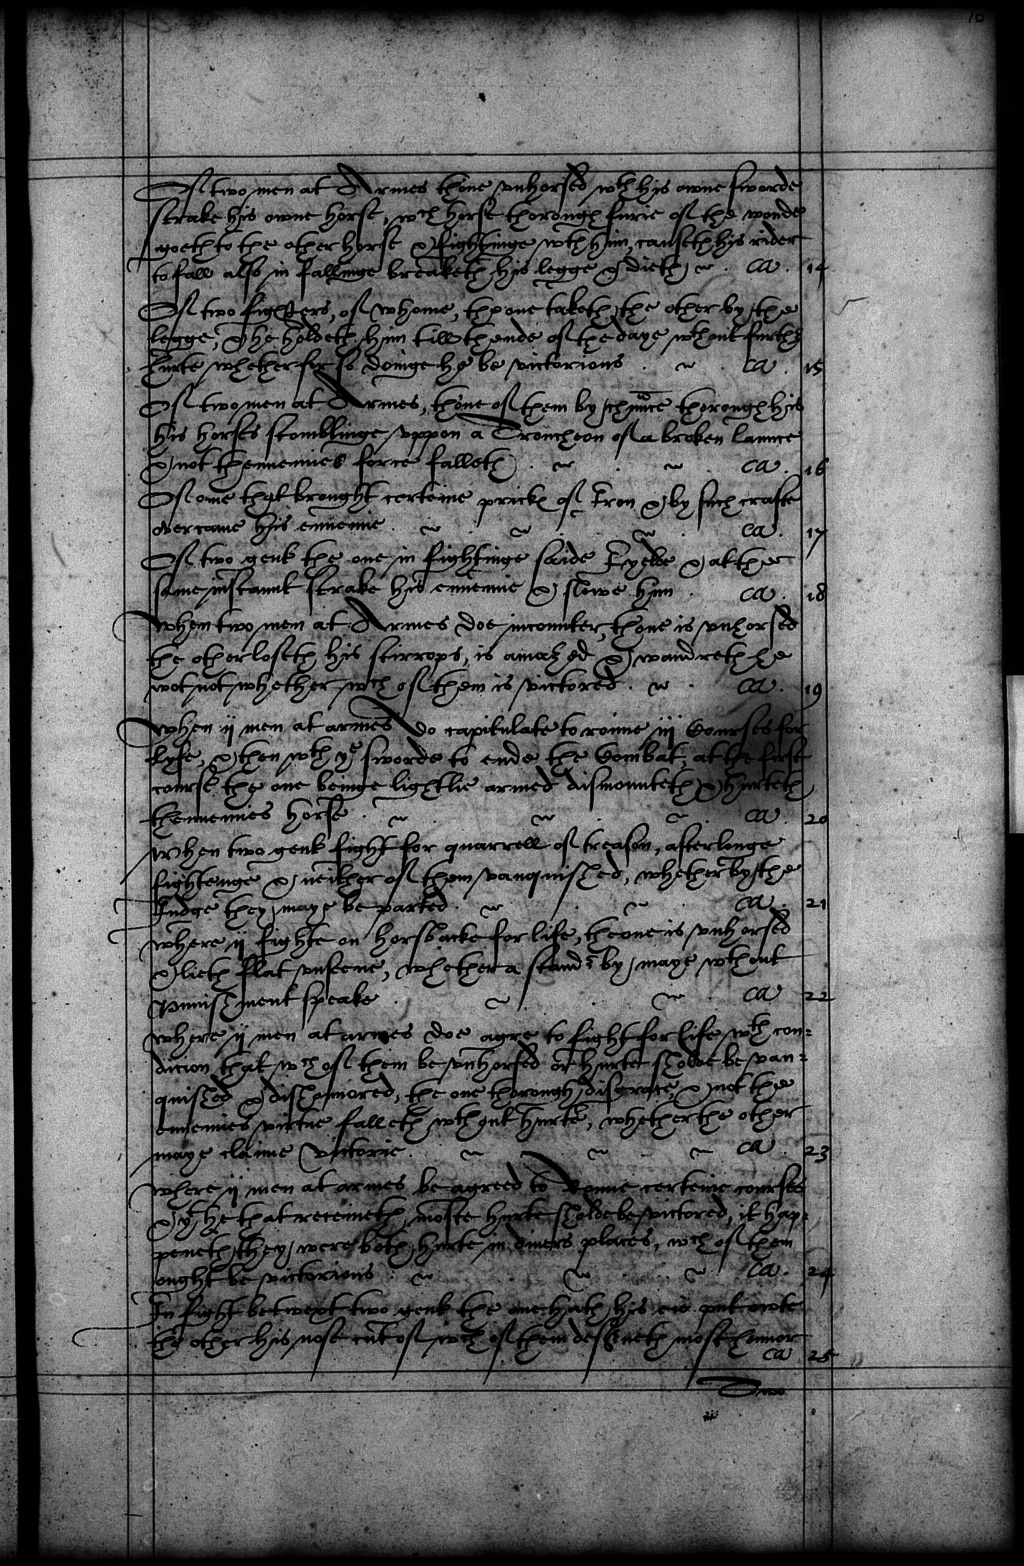 10
Of two men at Armes thone unhorsed wth his owne sworde
strake his owne horse, wch horse thorough furie of the wonde
goeth to the other horse & fightinge wth him, causeth his rider
to fall also in fallinge breaketh his legge & dieth ca. 14
Of two fighters, of whome, thone taketh the other by the
legge, & he holdeth him till thende of the daye wthout further
hurte, whether for so doinge he be victorious ca. 15
Of two men at Armes, thone of them by chaunce thorough his
his horses stomblinge uppon a Troncheon of a broken launce
& not thennemies force falleth ca. 16
Of one that brought certeine pricks of Iron & by such crafte
overcame his ennemie ca. 17
Of two gent the one in fightinge saide I yelde & at the
same instaunt strake his ennemie & slewe him ca. 18
When two men at Armes doe incounter, thone is unhorsed
the other loseth his stirrops, is amazed & wandreth he
wot not whether, wch of them is victored ca. 19
When ij men at armes do capitulate to ronne iij Courses for
lyfe, & then wth ye sworde to ende the Combat, at the first
course the one beinge lightlie armed dismounteth & hurteth
thennemies horse ca. 20
When two gent fight for quarrell of treason, after longe
fightenge & neither of them vanquished, whether by the
Judge they maye be parted ca. 21
Where ij fighte on horsbacke for life, the one is unhorsed
& lieth flat unseene, whether a stander by maye wthout
punishment speake ca 22
Where ij men at armes doe agre to fight for life wth con=
dicion that wch of them be unhorsed or hurte sholde be van=
quished & dishonored, the one thorough disgrace, & not the
ennemies virtue falleth wthout hurte, whether the other
maye claime victorie ca. 23
Where ij men at armes be agreed to Ronne certeine courses
& yt he that receiveth moste hurte sholde be victored, it hap=
peneth they were both hurte in divers places, wch of them
ought be victorious ca. 24
In fight betwext two gent the one hath his eie put owte
the other his nose cut of, wch of them deserveth most honnor
ca 25
Two